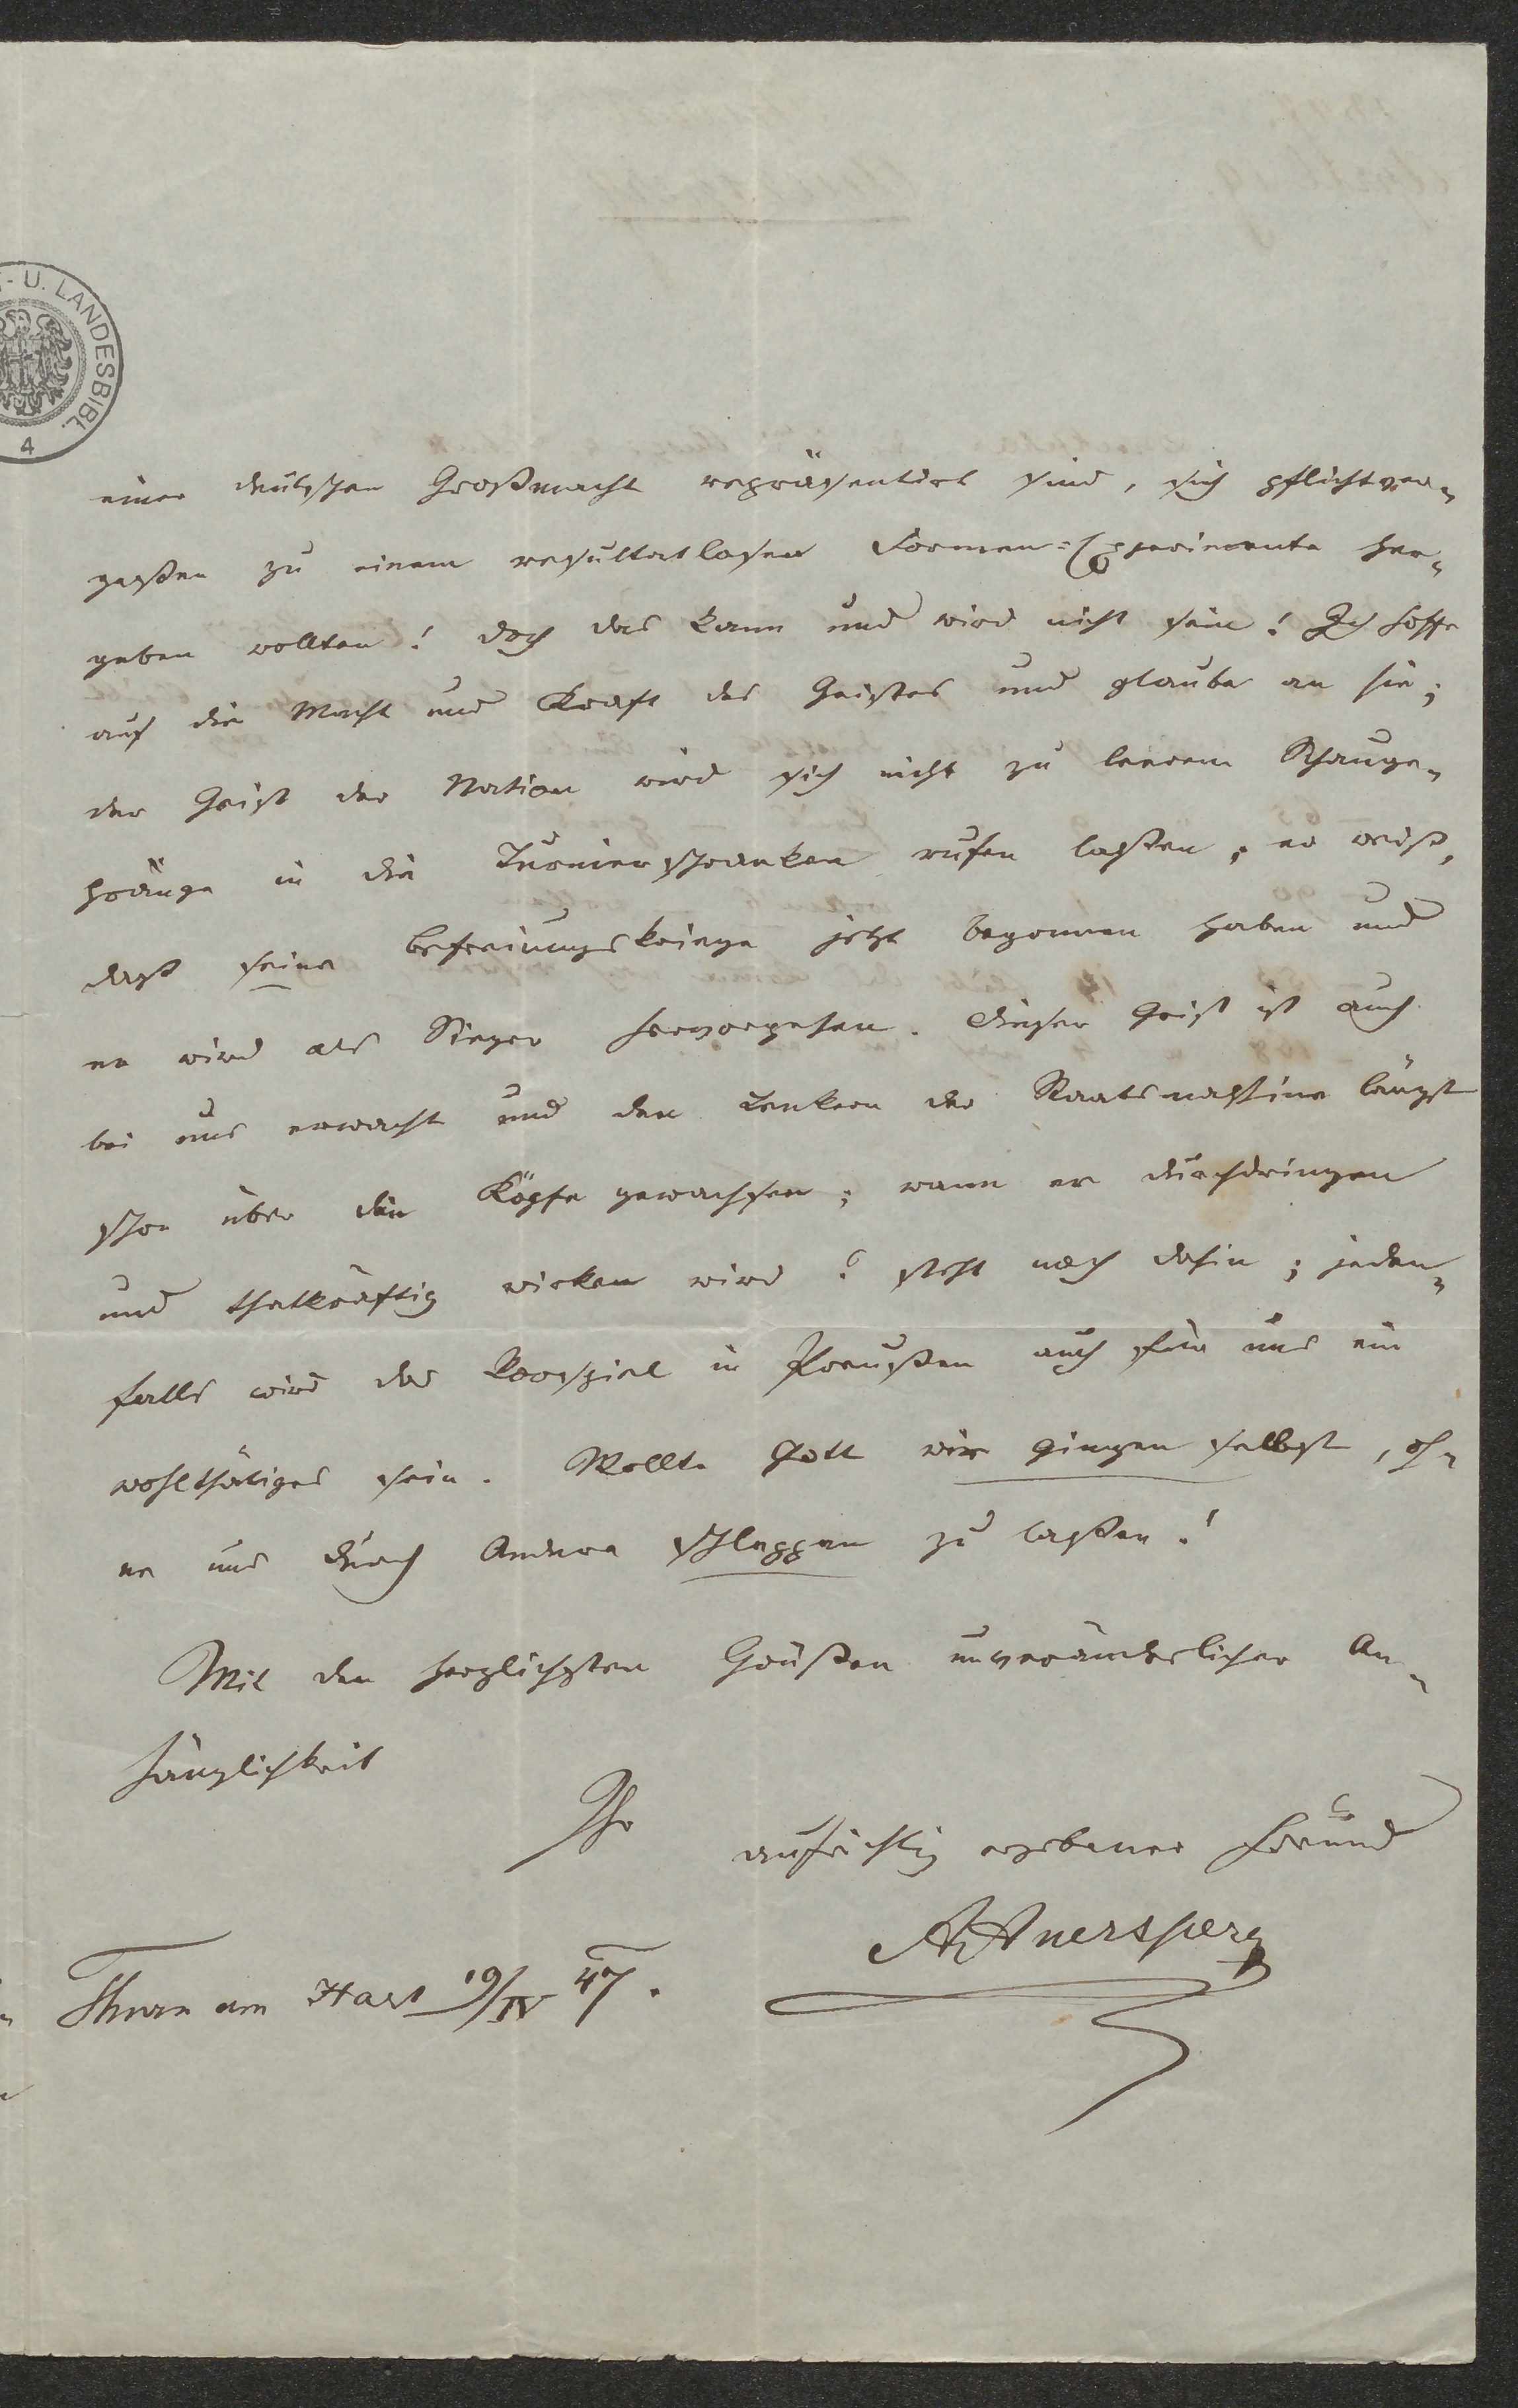 - U. LANDESBIBL.
4
einer deutschen Großmacht repräsentirt sind, sich pflichtver-
geßen zu einem resultatlosen Formen-Experimente her-
geben wollten! doch das kann und wird nicht sein! Ich hoffe
auf die Macht und Kraft des Geistes und glaube an sie;
der Geist der Nation wird sich nicht zu leerem Schauge-
pränge in die Turnierschranken rufen laßen; er weiß,
daß seine Befreiungskriege jetzt begonnen haben und
er wird als Sieger hervorgehen. Dieser Geist ist auch
bei uns erwacht und den Lenkern der Staatsmaschine längst
schon über die Köpfe gewachsen; wann er durchdringen
und thatkräftig wirken wird? steht noch dahin; jeden-
falls wird das Beispiel in Preußen auch für uns ein
wohlthätiges sein. Wollte Gott wir gingen selbst, oh-
ne uns durch Andere schleppen zu laßen!
Mit den herzlichsten Grüßen unveränderlicher An-
hänglichkeit
Ihr
aufrichtig ergebener Freund
AAuersperg
Thurn am Hart 19/IV 47.